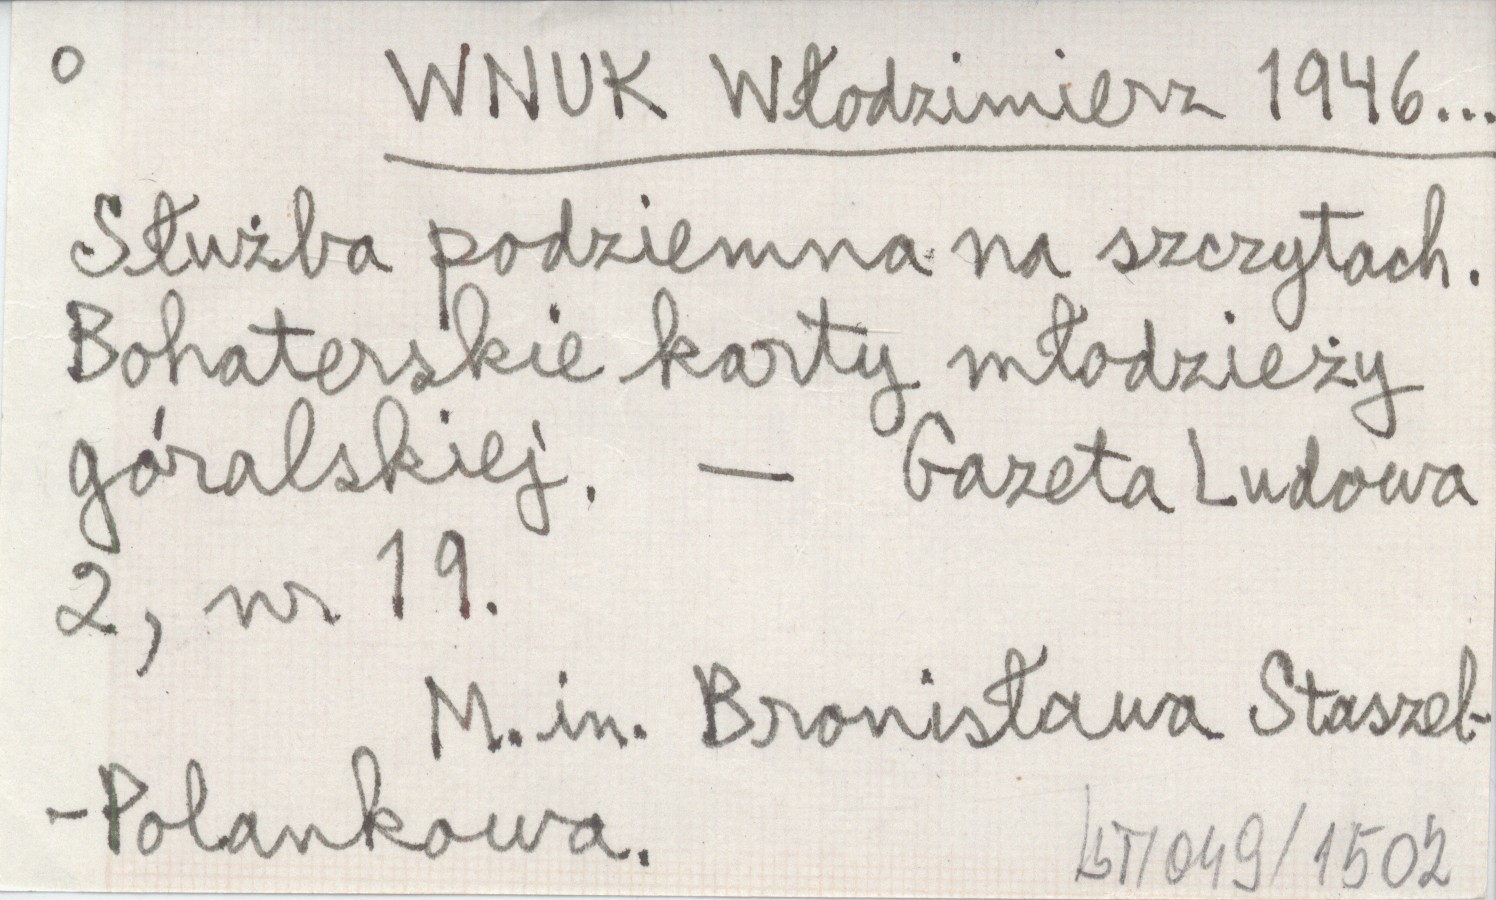 o WNUK Włodzimierz 1946...
Służba podziemna na szczytach.
Bohaterskie karty młodzieży
góralskiej. — Gazeta Ludowa
2, nr 19.
M.in. Bronisława Staszel-
-Polankowa.
049/1502